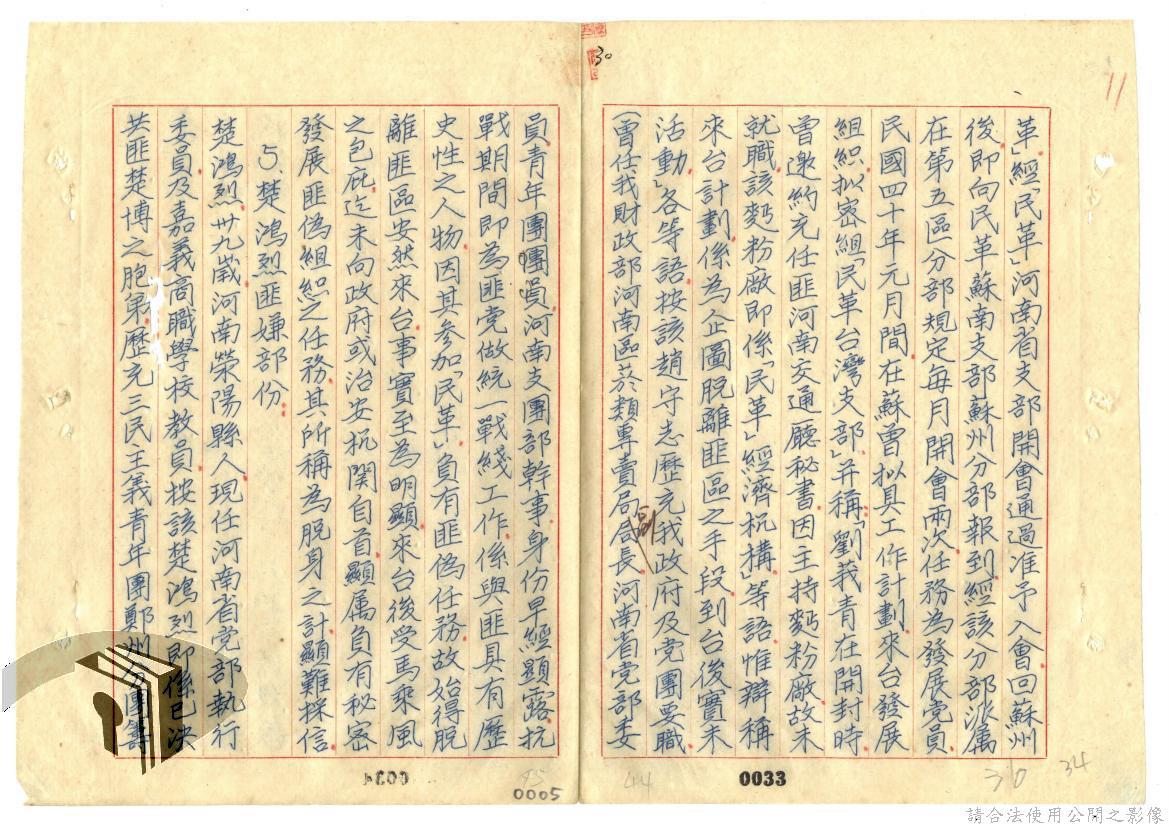 革」經「民革」河南省支部開會通過准予入會回蘇州
後即向民革蘇南支部蘇州分部報到經該分部派屬
在第五區分部規定每月開會兩次任務為發展党員
民國四十年元月間在蘇曾拟具工作計劃來台發展
組織拟密組「民革台灣支部」并稱「劉莪青在開封時
曾邀約充任匪河南交通廳秘書因主持麫粉廠故未
就職該麫粉廠即係「民革」經濟机構」等語惟辯稱
來台計劃係為企圖脫離匪區之手段到台後實未
活動」各等語按該趙守志歷充我政府及党團要職
(曾任我財政部河南區菸類專賣局副局長河南省党部委
員青年團團員河南支團部幹事身份早經顯露抗
戰期間即為匪党做統一戰綫工作係與匪具有歷
史性之人物因其參加「民革」負有匪偽任務故始得脫
離匪區安然來台事實至為明顯來台後受馬乘風
之包庇迄未向政府或治安机関自首顯属負有秘密
發展匪偽組織之任務其所稱為脫身之計顯難採信
5、楚鴻烈匪嫌部份
楚鴻烈卅九歲河南滎陽縣人現任河南省党部執行
委員及嘉義商職學校教員按該楚鴻烈即係已決
共匪楚博之胞弟歷充三民主義青年團鄭州分團籌
30
11
0033
44
36
34
0034
45
0005
請合法使用公開之影像